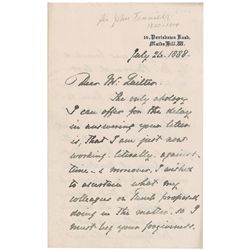 Sir John Tenniel
1820-1914
10, Portsdown Road,
Maida Hill, W.
July 26. 1888.
Dear Mr. Laitter
The only apology
I can offer for the delay
in answering your letter
is, that I am just now
working, literally, against
time - & moreover, I wished
to ascertain what my
colleagues on Punch proposed
doing in the matter. so I
must beg your forgiveness.